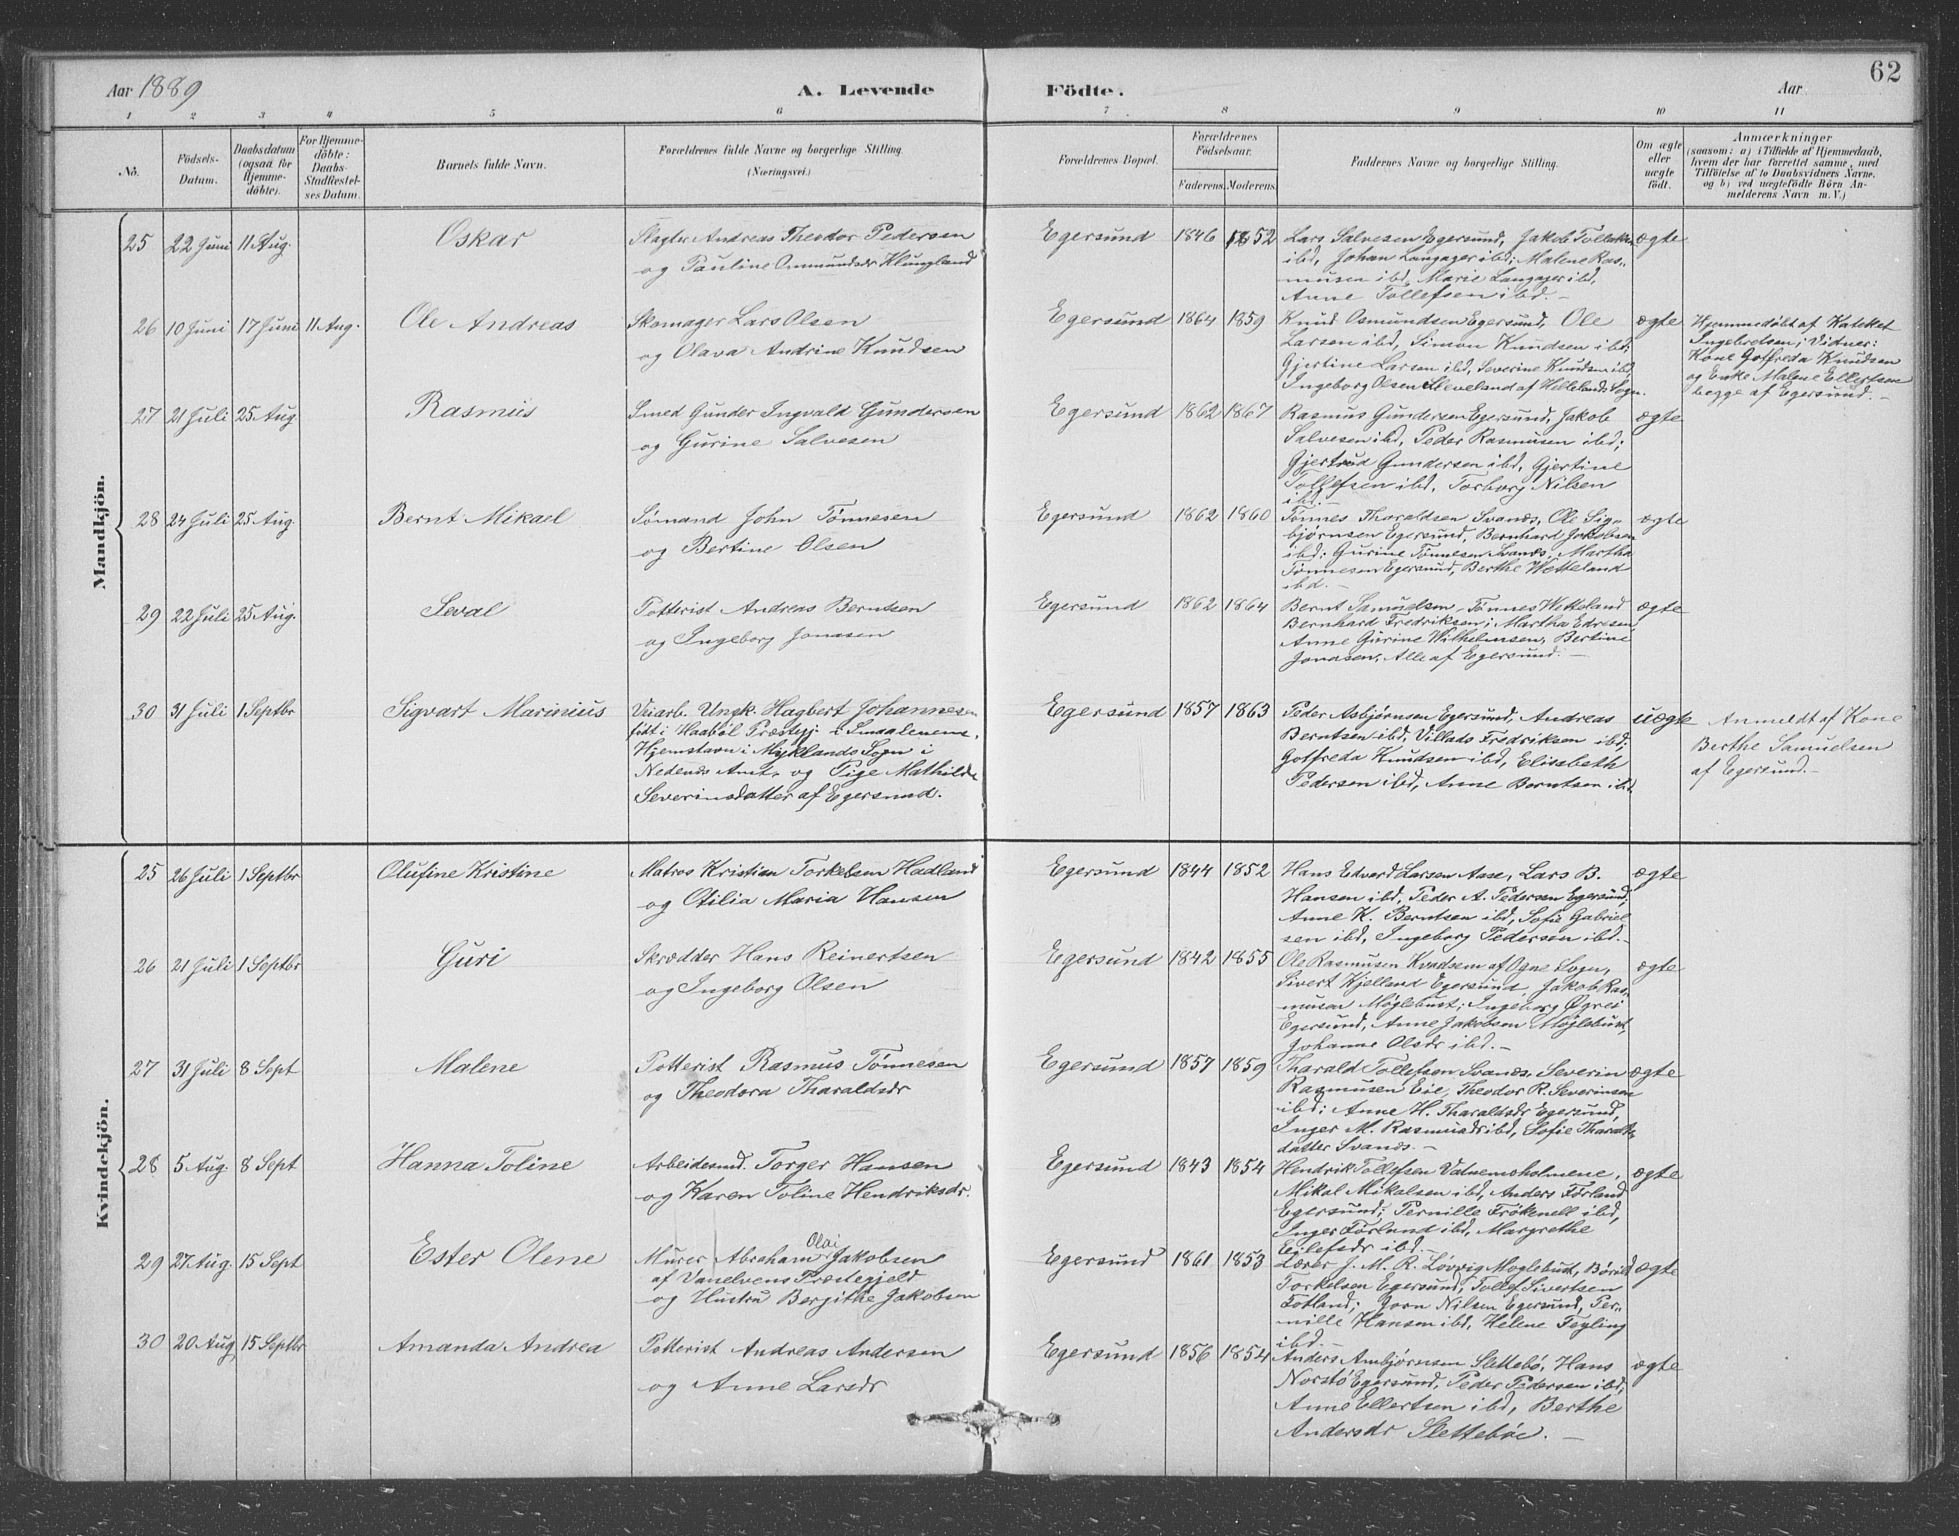 Aar 1889 A. Levende Födte. Aar 62
1 2 3 4 5 6 7 8 9 10 11
No.
Födsels-
Datum.
Daabsdatum
(ogsaa for
Hjemme-
döbte).
For Hjemme-
döbte:
Daabs-
Stadfæstel-
ses Datum.
Barnets fulde Navn.
Forældrenes fulde Navne og borgerlige Stilling
(Næringsvei.)
Forældrenes Bopæl.
Forældrenes
Födselsaar.
Faderens. Moderens.
Faddernes Navne og borgerlige Stilling.
Om ægte
eller
uægte
födt.
Anmærkninger
(saasom: a) i Tilfælde af Hjemmedaab,
hvem der har forrettet samme, med
Tilföielse af to Daabsvidners Navne,
og b) ved uægtefödte Börn An-
melderens Navn m. V.)
Mandkjön.
25 22 Juni 11 Aug. Oskar
Slagter Andreas Theodor Pedersen
og Pauline Ommundsdr Klungland
Egersund 1846 1852
Lars Salvesen Egersund, Jakob Tollefsen
ibd, Johan Langager ibd; Malene Ras-
musen ibd, Marie Langager ibd,
Anne Tollefsen ibd. -
ægte
26 10 Juni 17 Juni 11 Aug. Ole Andreas
Skomager Lars Olsen
og Olava Andrine Knudsen
Egersund 1864 1859
Knud Osmundsen Egersund, Ole
Larsen ibd, Simon Knudsen ibd;
Gjertine Larsen ibd, Severine Knudsen ibd,
Ingeborg Olsen Sleveland af Hellelands Sogn.
ægte
Hjemmedøbt af Kateket
Ingebretsen; Vidner:
Kone Gotfreda Knudsen
og Enke Malene Ellertsen
begge af Egersund. -
27 21 Juli 25 Aug. Rasmus
Smed Gunder Ingvald Gundersen
og Gurine Salvesen
Egersund 1862 1867
Rasmus Gundersen Egersund, Jakob
Salvesen ibd, Peder Rasmusen ibd;
Gjertrud Gundersen ibd, Gjertine
Tollefsen ibd, Torborg Nilsen
ibd. -
ægte
28 24 Juli 25 Aug. Bernt Mikael
Sømand John Tønnesen
og Bertine Olsen
Egersund 1862 1860
Tønnes Tharaldsen Svanes, Ole Sig-
bjørnsen Egersund, Bernhard Jakobsen
ibd; Gurine Tønnesen Svanes, Martha
Tønnesen Egersund, Berthe Wetteland
ibd. -
ægte
29 22 Juli 25 Aug. Seval
Potterist Andreas Berntsen
og Ingeborg Jonasen
Egersund 1862 1864
Bernt Samuelsen, Tønnes Wetteland
Bernhard Fredriksen; Martha Edresen,
Anne Gurine Wilhelmsen, Bertine
Jonasen, Alle af Egersund. -
ægte
30 31 Juli 1 Septbr Sigvart Marinius
Veiarb. Ungk. Hagbert Johannesen
født i Haabøl Præstegj. i Smalenene,
Hjemstavn i Myklands Sogn i
Nedenæs Amt, og Pige Mathilde
Severinsdatter af Egersund.
Egersund 1857 1863
Peder Asbjørnsen Egersund, Andreas
Berntsen ibd, Villads Fredriksen ibd;
Gotfreda Knudsen ibd, Elisabeth
Pedersen ibd, Anne Berntsen ibd.
uægte
Anmeldt af Kone
Berthe Samuelsen
af Egersund. -
Kvindekjön.
25 26 Juli 1 Septbr Olufine Kristine
Matros Kristian Torkelsen Hadland
og Otilia Maria Hansen
Egersund 1844 1852
Hans Edvard Larsen Aase, Lars B.
Hansen ibd, Peder A. Pedersen Egersund;
Anne K. Berntsen ibd, Sofie Gabriel-
sen ibd, Ingeborg Pedersen ibd. -
ægte
26 21 Juli 1 Septbr Guri
Skrædder Hans Reinertsen
og Ingeborg Olsen
Egersund 1842 1855
Ole Rasmusen Kvadsem af Ogne Sogn,
Sivert Kjelland Egersund, Jakob Ras-
musen Møglebust; Ingeborg Øgrei
Egersund, Anne Jakobsen Møglebust,
Johanne Olsdr ibd. -
ægte
27 31 Juli 8 Sept Malene
Potterist Rasmus Tønnesen
og Theodora Tharaldsdr
Egersund 1857 1859
Tharald Tollefsen Svanes, Severin
Rasmusen Eie, Theodor R. Severinsen
ibd; Anne H. Tharaldsdr Egersund,
Inger M. Rasmusdr ibd, Sofie Tharalds-
datter Svanes. -
ægte
28 5 Aug. 8 Sept Hanna Toline
Arbeidsmd. Torger Hansen
og Karen Toline Hendriksdr.
Egersund 1843 1854
Hendrik Tollefsen Vatnemoholmene,
Mikal Mikalsen ibd, Anders Førland
Egersund; Pernille Frøkenell ibd,
Inger Førland ibd, Margrethe
Eilefsdr ibd. -
ægte
29 27 Aug. 15 Sept Ester Olene
Olai
Murer Abraham Jakobsen
af Vanelvens Præstegjeld
og Hustru Bergithe Jakobsen
Egersund 1861 1853
Lærer J. M. R. Løvvig Moglebust, Børild
Torkelsen Egersund, Tollef Sivertsen
Fotland; Jorn Nilsen Egersund, Per-
nille Hansen ibd, Helene Tegling
ibd. -
ægte
30 20 Aug 15 Septbr Amanda Andrea
Potterist Andreas Andersen
og Anne Larsdr
Egersund 1856 1854
Anders Ambjørnsen Slettebø, Hans
Norstø Egersund, Peder Pedersen ibd;
Anne Ellertsen ibd, Berthe
Andersdr Slettebøe. -
ægte